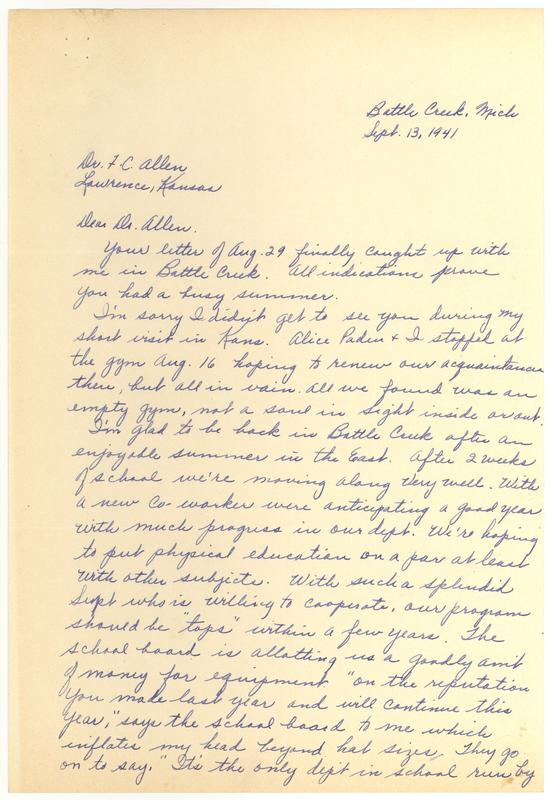 Battle Creek, Mich
Sept. 13, 1941
Dr. F. C. Allen
Lawrence, Kansas
Dear Dr. Allen.
Your letter of Aug. 29 finally caught up with
me in Battle Creek. All indications prove
you had a busy summer.
I'm sorry I didn't get to see you during my
short visit in Kans. Alice Paden & I stopped at
the gym Aug. 16 hoping to renew our acquaintance
there, but all in vain. All we found was an
empty gym, not a soul in sight inside or out.
I'm glad to be back in Battle Creek after an
enjoyable summer in the East. After 2 weeks
of school we're moving along very well. With
a new co-worker were anticipating a good year
with much progress in our dept. We're hoping
to put physical education on a par at least
with other subjects. With such a splendid
Supt who is willing to cooperate, our program
should be "tops" within a few years. The
school board is allotting us a goodly am't
of money for equipment "on the reputation
you made last year and will continue this
year," says the school board to me which
inflates my head beyond hat sizes. They go
on to say, "It's the only dept in school run by